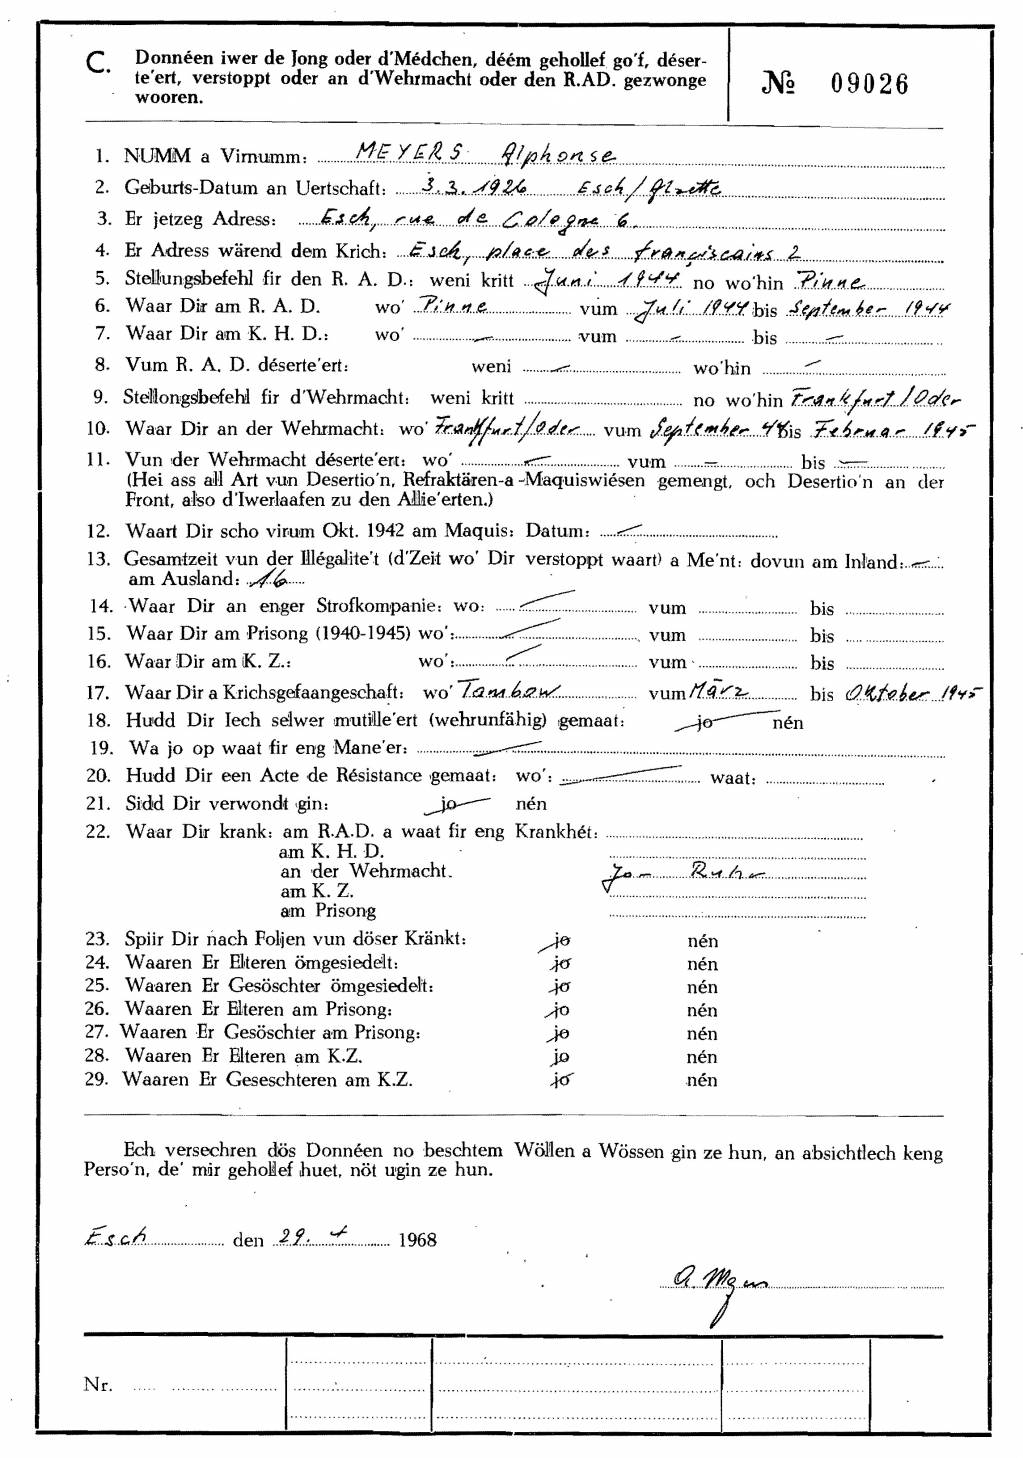 C. Donnéen iwer de Jong oder d'Médchen, déém gehollef go'f, déser-
te'ert, verstoppt oder an d'Wehrmacht oder den R.AD. gezwonge
wooren.
№ 09026
1. NUMM a Virnumm: MEYERS Alphonse
2. Geburts-Datum an Uertschaft: 3.3.1926 Esch/Alzette
3. Er jetzeg Adress: Esch, rue de Cologne 6.
4. Er Adress wärend dem Krich: Esch, place des franciscains 2
5. Stellungsbefehl fir den R. A. D.: weni kritt Juni 1944 no wo'hin Pinne
6. Waar Dir am R. A. D. wo' Pinne vum Juli 1944 bis September 1944
7. Waar Dir am K. H. D.: wo' — vum — bis —
8. Vum R. A. D. déserte'ert: weni — wo'hin —
9. Stellongsbefehl fir d'Wehrmacht: weni kritt no wo'hin Frankfurt/Oder
10. Waar Dir an der Wehrmacht: wo' Frankfurt/Oder vum September 44 bis Februar 1945
11. Vun der Wehrmacht déserte'ert: wo' — vum — bis —
(Hei ass all Art vun Desertio'n, Refraktären-a -Maquiswiésen gemengt, och Desertio'n an der
Front, also d'Iwerlaafen zu den Allie'erten.)
12. Waart Dir scho virum Okt. 1942 am Maquis: Datum: —
13. Gesamtzeit vun der Illégalite't (d'Zeit wo' Dir verstoppt waart) a Me'nt: dovun am Inland: —
am Ausland: 16
14. Waar Dir an enger Strofkompanie: wo: — vum bis
15. Waar Dir am Prisong (1940-1945) wo': — vum bis
16. Waar Dir am K. Z.: wo': — vum bis
17. Waar Dir a Krichsgefaangeschaft: wo' Tambow vum März bis Oktober 1945
18. Hudd Dir Iech selwer mutille'ert (wehrunfähig) gemaat: jo nén
19. Wa jo op waat fir eng Mane'er: —
20. Hudd Dir een Acte de Résistance gemaat: wo': — waat:
21. Sidd Dir verwondt gin: jo nén
22. Waar Dir krank: am R.A.D. a waat fir eng Krankhét:
am K. H. D.
an der Wehrmacht. Jo – Ruhr
am K. Z.
am Prisong
23. Spiir Dir nach Foljen vun döser Kränkt: jo nén
24. Waaren Er Elteren ömgesiedelt: jo nén
25. Waaren Er Gesöschter ömgesiedelt: jo nén
26. Waaren Er Elteren am Prisong: jo nén
27. Waaren Er Gesöschter am Prisong: jo nén
28. Waaren Er Elteren am K.Z. jo nén
29. Waaren Er Geseschteren am K.Z. jo nén
Ech versechren dös Donnéen no beschtem Wöllen a Wössen gin ze hun, an absichtlech keng
Perso'n, de' mir gehollef huet, nöt ugin ze hun.
Esch den 29. 4 1968
A. Meyers
Nr.